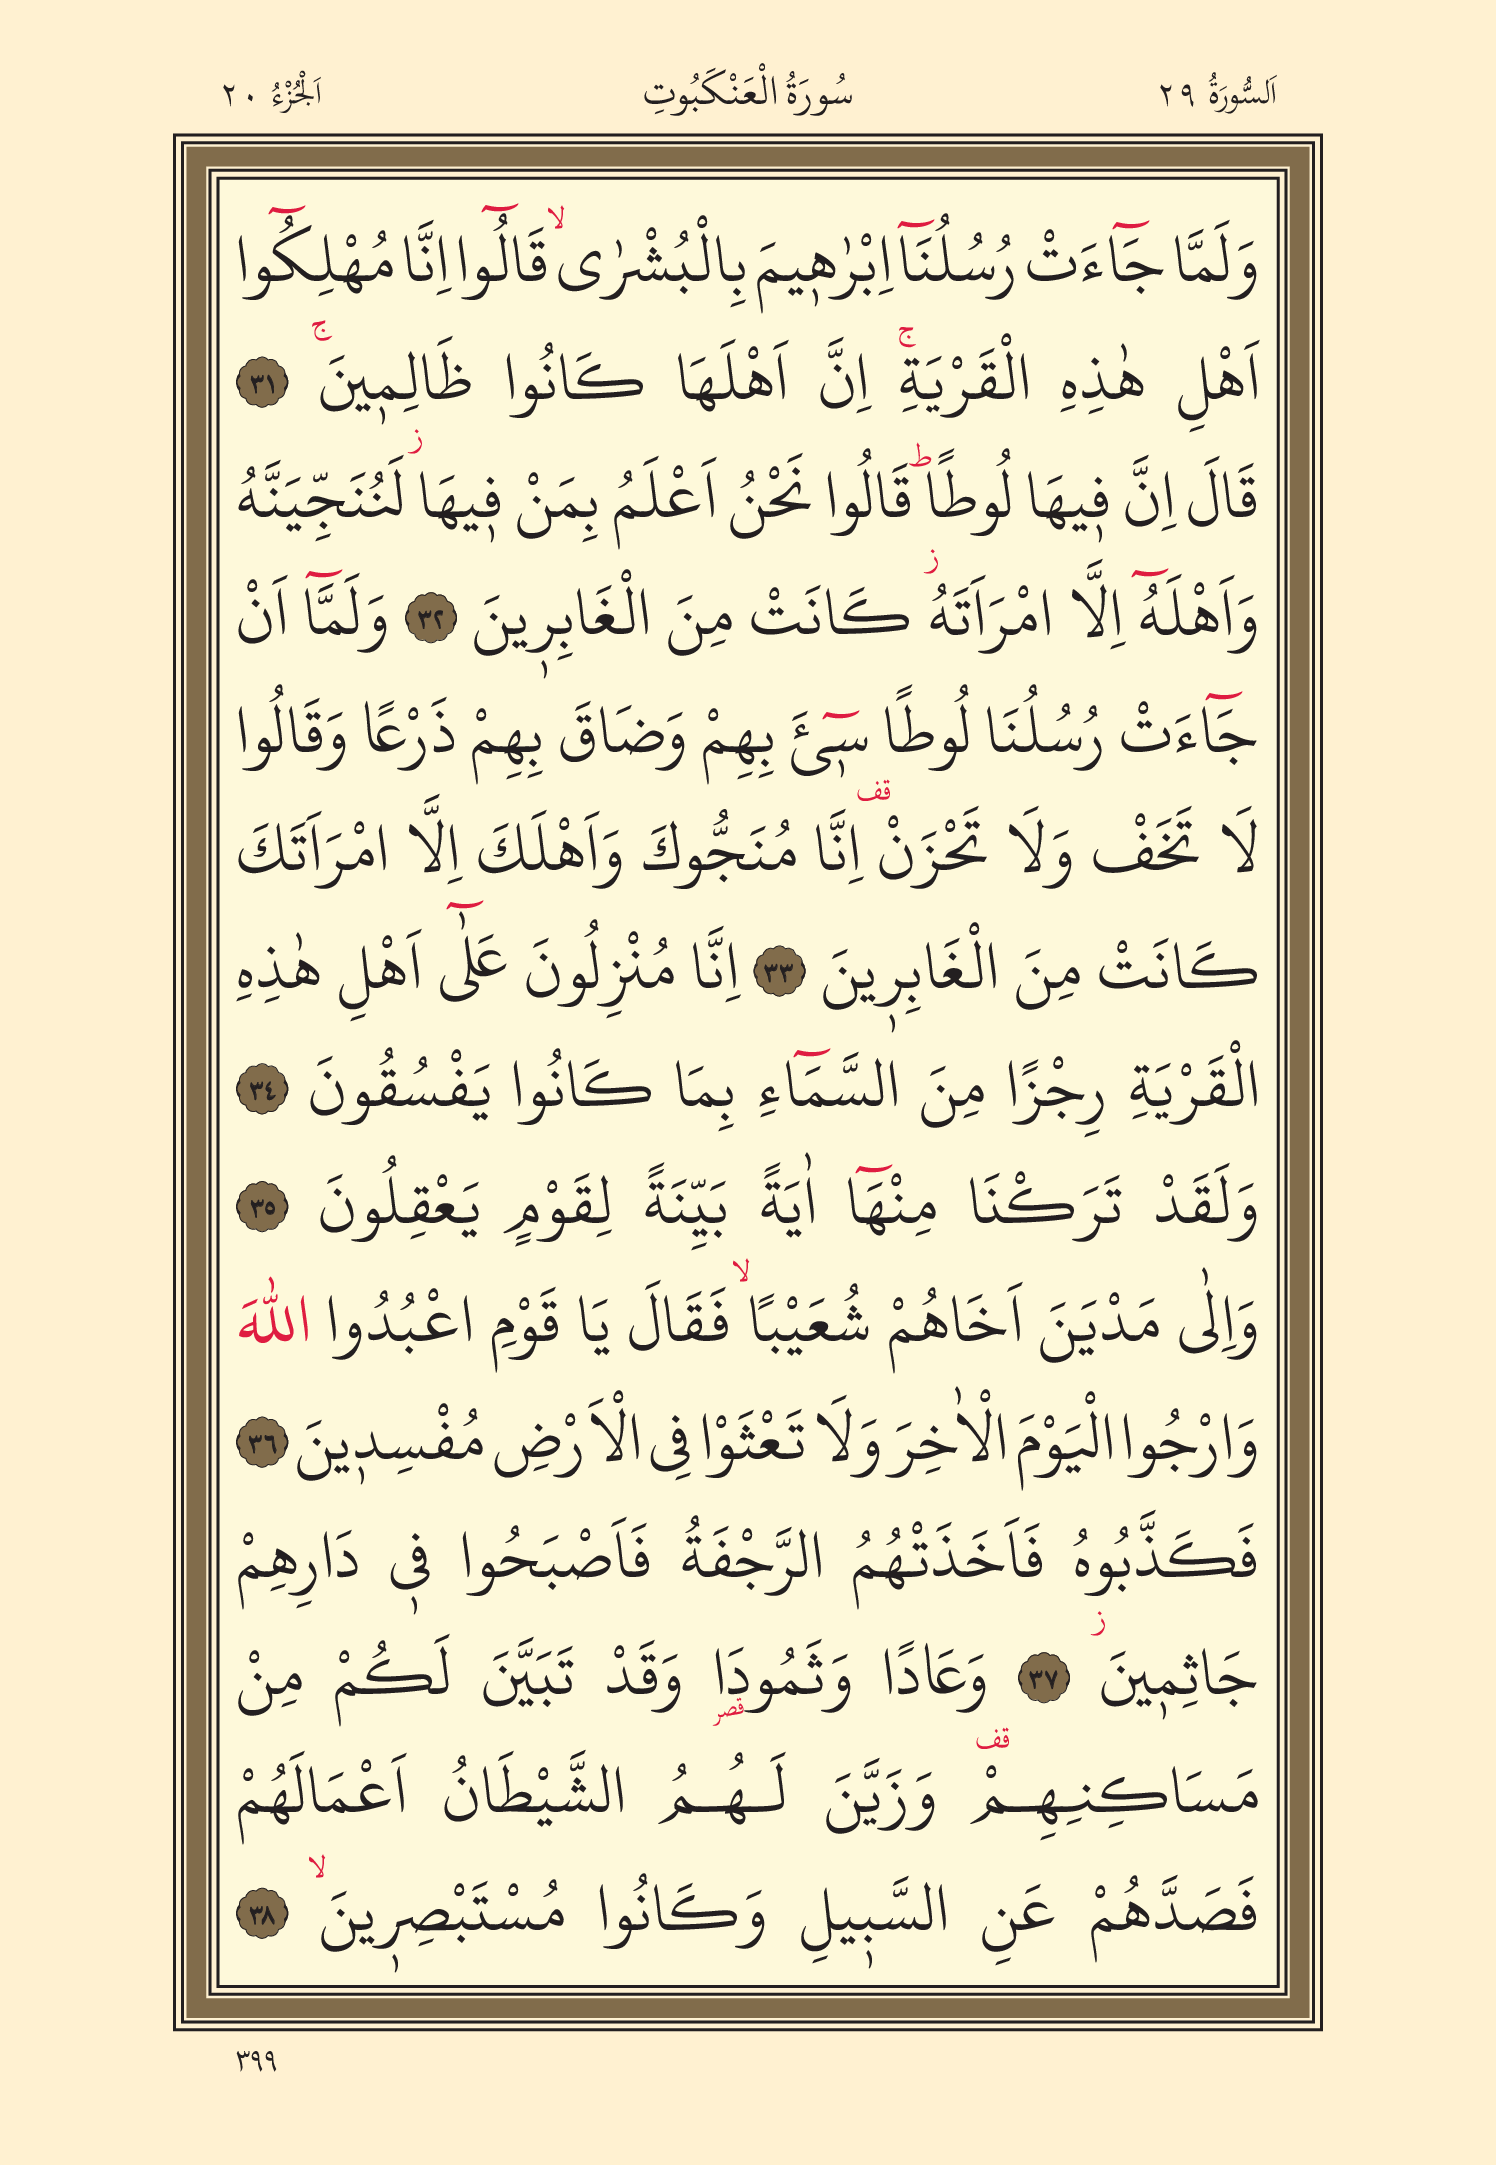 اَلسُّورَةُ ٢٩ سُورَةُ الْعَنْكَبُوتِ اَلْجُزْءُ ٢٠
وَلَمَّا جَٓاءَتْ رُسُلُنَٓا اِبْرٰه۪يمَ بِالْبُشْرٰىۙ قَالُٓوا اِنَّا مُهْلِكُٓوا
اَهْلِ هٰذِهِ الْقَرْيَةِۚ اِنَّ اَهْلَهَا كَانُوا ظَالِم۪ينَۚ ﴿٣١﴾
قَالَ اِنَّ ف۪يهَا لُوطًاۜ قَالُوا نَحْنُ اَعْلَمُ بِمَنْ ف۪يهَاۘ لَنُنَجِّيَنَّهُ
وَاَهْلَهُٓ اِلَّا امْرَاَتَهُۘ كَانَتْ مِنَ الْغَابِر۪ينَ ﴿٣٢﴾ وَلَمَّٓا اَنْ
جَٓاءَتْ رُسُلُنَا لُوطًا س۪ٓيءَ بِهِمْ وَضَاقَ بِهِمْ ذَرْعًا وَقَالُوا
لَا تَخَفْ وَلَا تَحْزَنْ۠ اِنَّا مُنَجُّوكَ وَاَهْلَكَ اِلَّا امْرَاَتَكَ
كَانَتْ مِنَ الْغَابِر۪ينَ ﴿٣٣﴾ اِنَّا مُنْزِلُونَ عَلٰٓى اَهْلِ هٰذِهِ
الْقَرْيَةِ رِجْزًا مِنَ السَّمَٓاءِ بِمَا كَانُوا يَفْسُقُونَ ﴿٣٤﴾
وَلَقَدْ تَرَكْنَا مِنْهَٓا اٰيَةً بَيِّنَةً لِقَوْمٍ يَعْقِلُونَ ﴿٣٥﴾
وَاِلٰى مَدْيَنَ اَخَاهُمْ شُعَيْبًاۙ فَقَالَ يَا قَوْمِ اعْبُدُوا اللّٰهَ
وَارْجُوا الْيَوْمَ الْاٰخِرَ وَلَا تَعْثَوْا فِي الْاَرْضِ مُفْسِد۪ينَ ﴿٣٦﴾
فَكَذَّبُوهُ فَاَخَذَتْهُمُ الرَّجْفَةُ فَاَصْبَحُوا ف۪ي دَارِهِمْ
جَاثِم۪ينَۘ ﴿٣٧﴾ وَعَادًا وَثَمُودَا۬ وَقَدْ تَبَيَّنَ لَكُمْ مِنْ
مَسَاكِنِهِمْ۠ وَزَيَّنَ لَهُمُ الشَّيْطَانُ اَعْمَالَهُمْ
فَصَدَّهُمْ عَنِ السَّب۪يلِ وَكَانُوا مُسْتَبْصِر۪ينَۙ ﴿٣٨﴾
٣٩٩